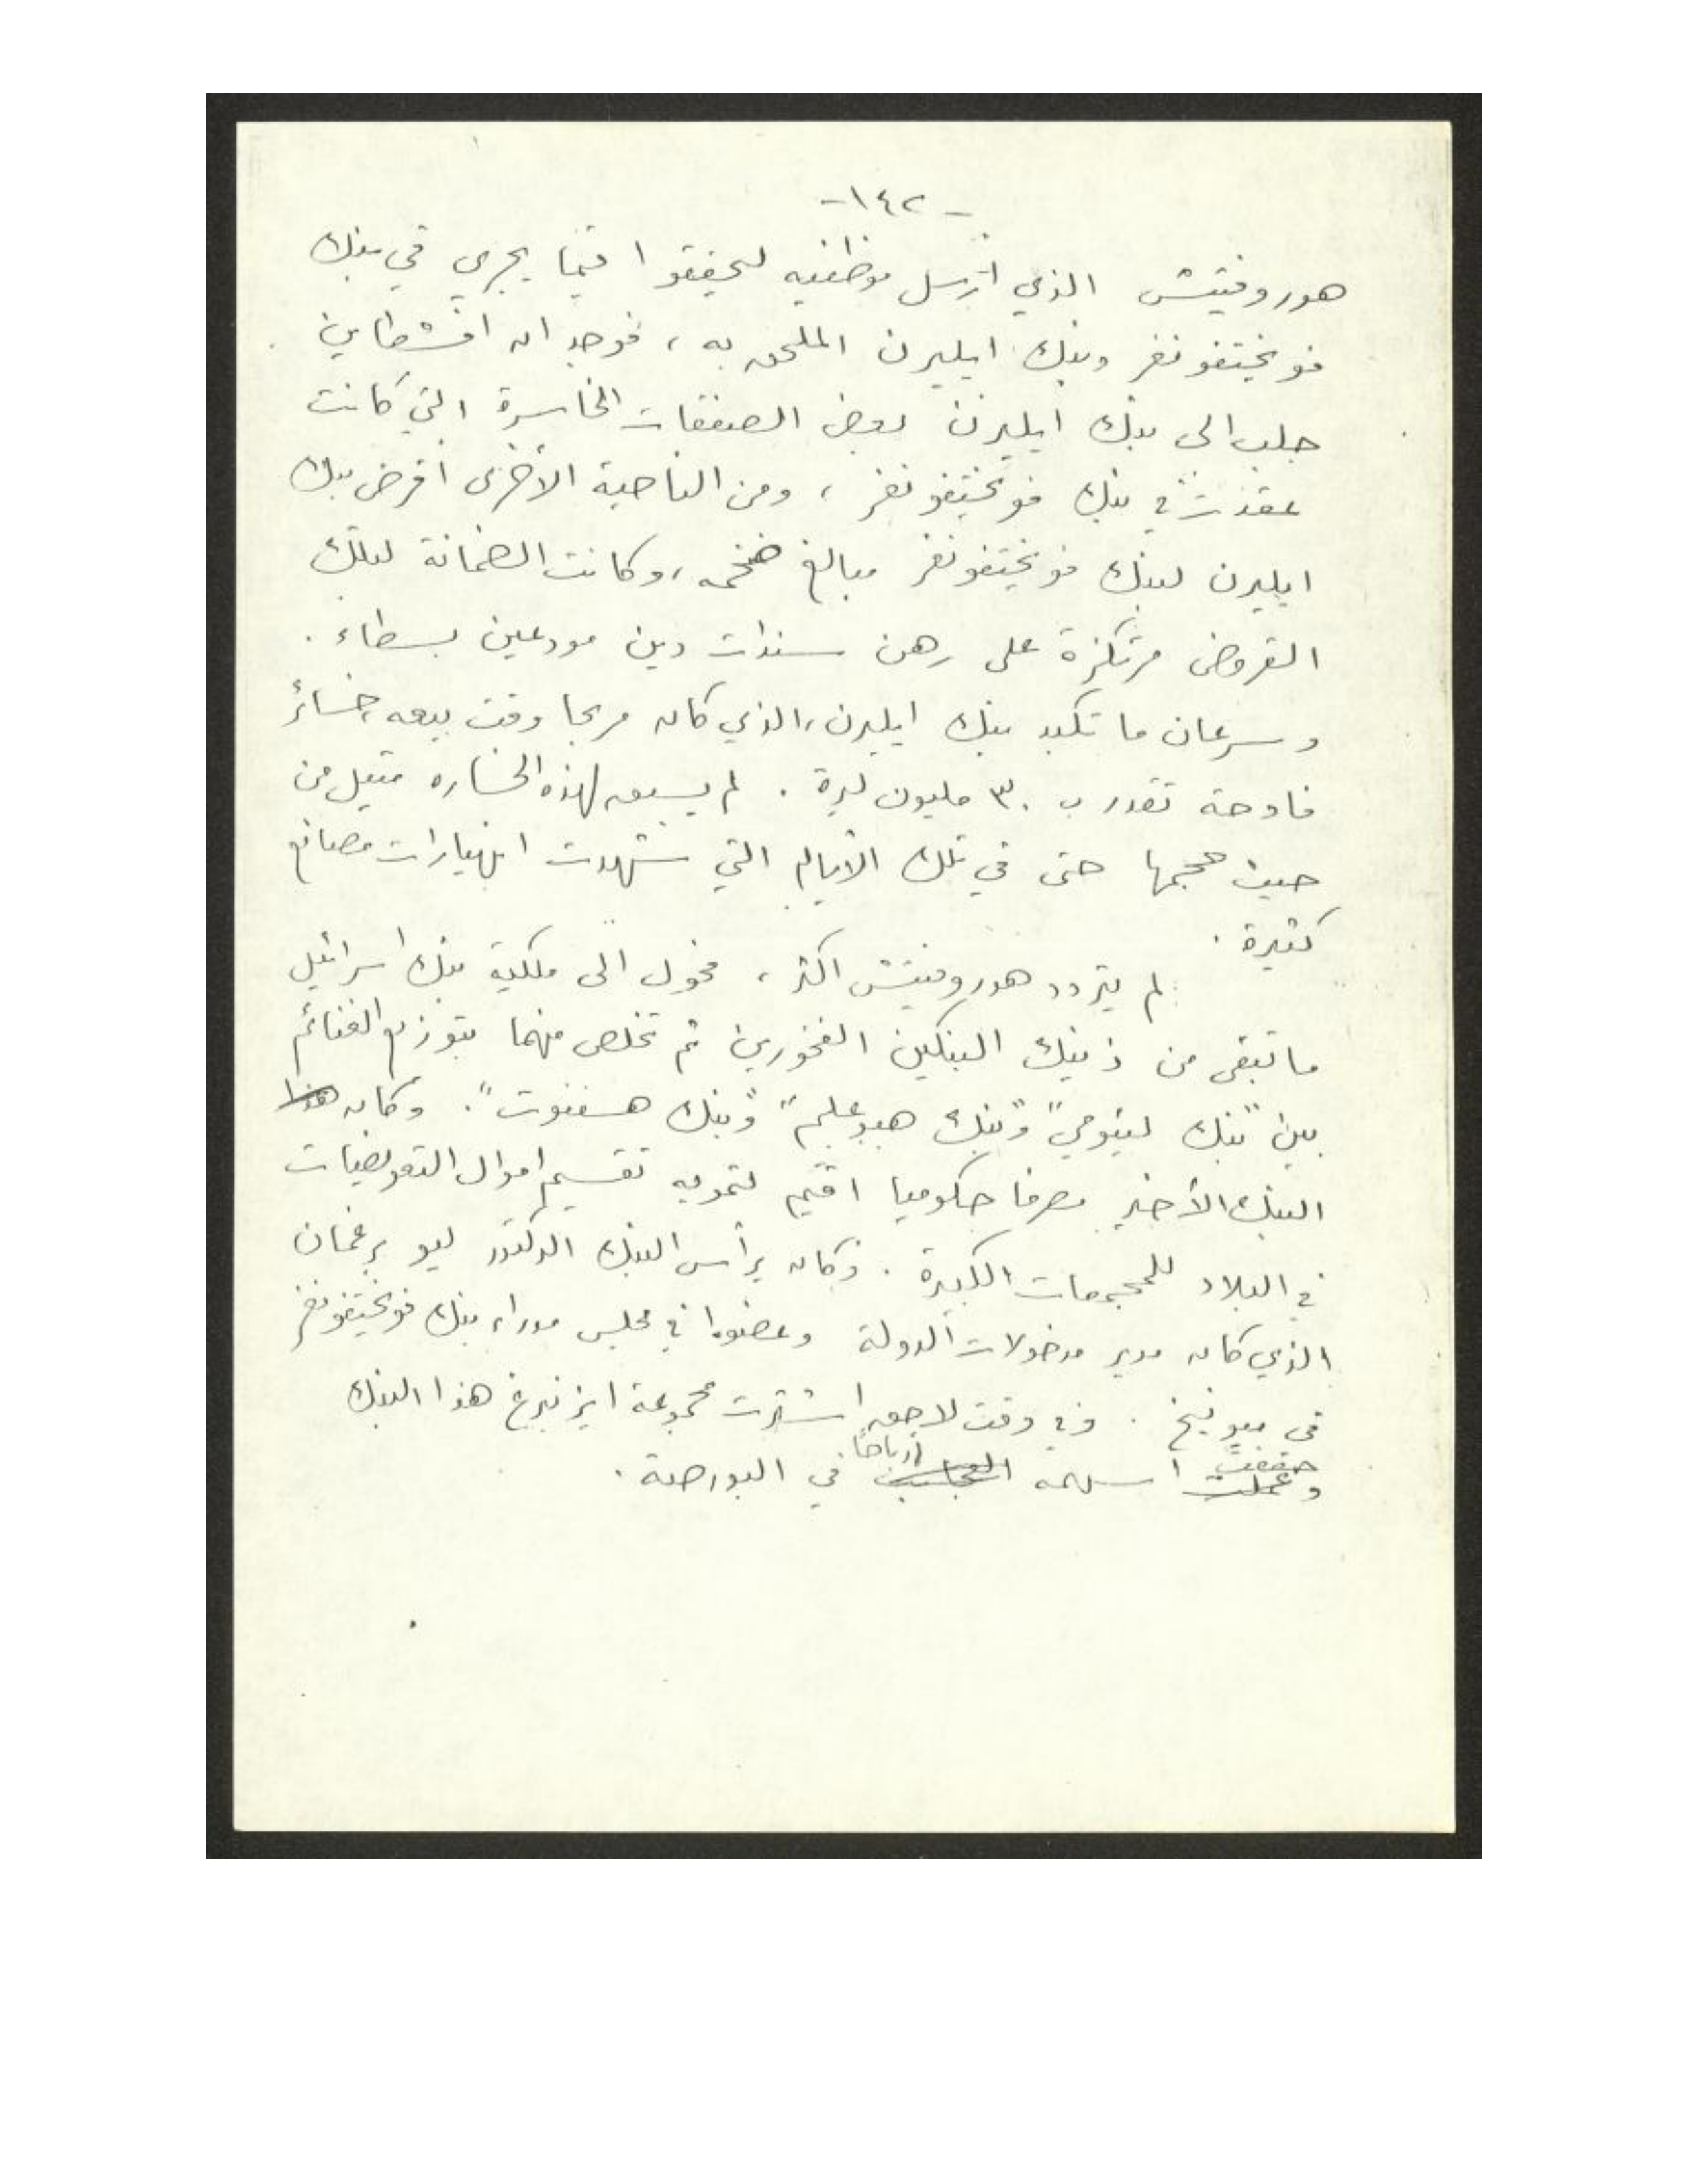 -١٤٢-
هوروفيتش الذي أرسل موظفيه ليحققوا فيما يجري في بنك
فويختفونغر وبنك ايليرن الملحق به ، فوجد ان افشطاين
جلب الى بنك ايليرن بعض الصفقات الخاسرة التي كانت
عقدت في بنك فويختفونغر ، ومن الناحية الأخرى أقرض بنك
ايليرن لبنك فويختفونغر مبالغ ضخمه ، وكانت الضمانة لتلك
القروض مرتكزة على رهن سندات دين مودعين بسطاء .
وسرعان ما تكبد بنك ايليرن ، الذي كان مربحا وقت بيعه ، خسائر
فادحة تقدر ب ٣٠ مليون ليرة . لم يسبق لهذه الخساره مثيل من
حيث حجمها حتى في تلك الأيام التي شهدت انهيارات مصانع
كثيرة .
لم يتردد هوروفيتش اكثر ، فحول الى ملكية بنك اسرائيل
ما تبقى من ذينك البنكين الفخورين ثم تخلص منهما بتوزيع الغنائم
بين "بنك ليئومي" و"بنك هبوعليم" و"بنك هسفنوت" . وكان هذا
البنك الأخير مصرفا حكوميا اقيم لتمويه تقسيم اموال التعويضات
في البلاد للمجموعات الكبيرة . وكان يرأس البنك الدكتور ليو برغمان
الذي كان مدير مدخولات الدولة وعضوا في مجلس مدراء بنك فويختفونغر
في ميونيخ . وفي وقت لاحق اشترت مجموعة ايزنبرغ هذا البنك
وحققت اسهمه أرباحاً في البورصة .